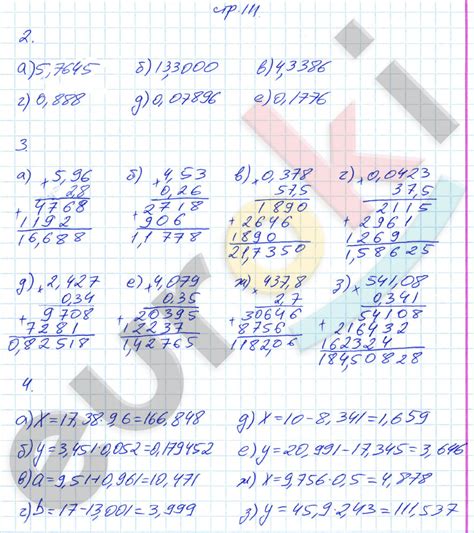 стр. 111.
2.
а) 5,7645 б) 13,000 в) 4,3386
г) 0,888 д) 0,07896 е) 0,1776
3.
а) × 5,96 б) × 4,53 в) × 0,378 г) × 0,0423
2,8 0,26 57,5 37,5
+ 4768 + 2718 1890 2115
1192 906 + 2646 + 2961
16,688 1,1778 1890 1269
21,7350 1,58625
д) × 2,427 е) × 4,079 ж) × 437,8 з) × 541,08
0,34 0,35 2,7 0,341
+ 9708 + 20395 + 30646 54108
7281 12237 8756 + 216432
0,82518 1,42765 1182,06 162324
184,50828
4.
а) x=17,38·9,6=166,848 д) x=10-8,341=1,659
б) y=3,451·0,052=0,179452 е) y=20,991-17,345=3,646
в) a=9,51+0,961=10,471 ж) x=9,756·0,5=4,878
г) b=17-13,001=3,999 з) y=45,9·2,43=111,537
euroki